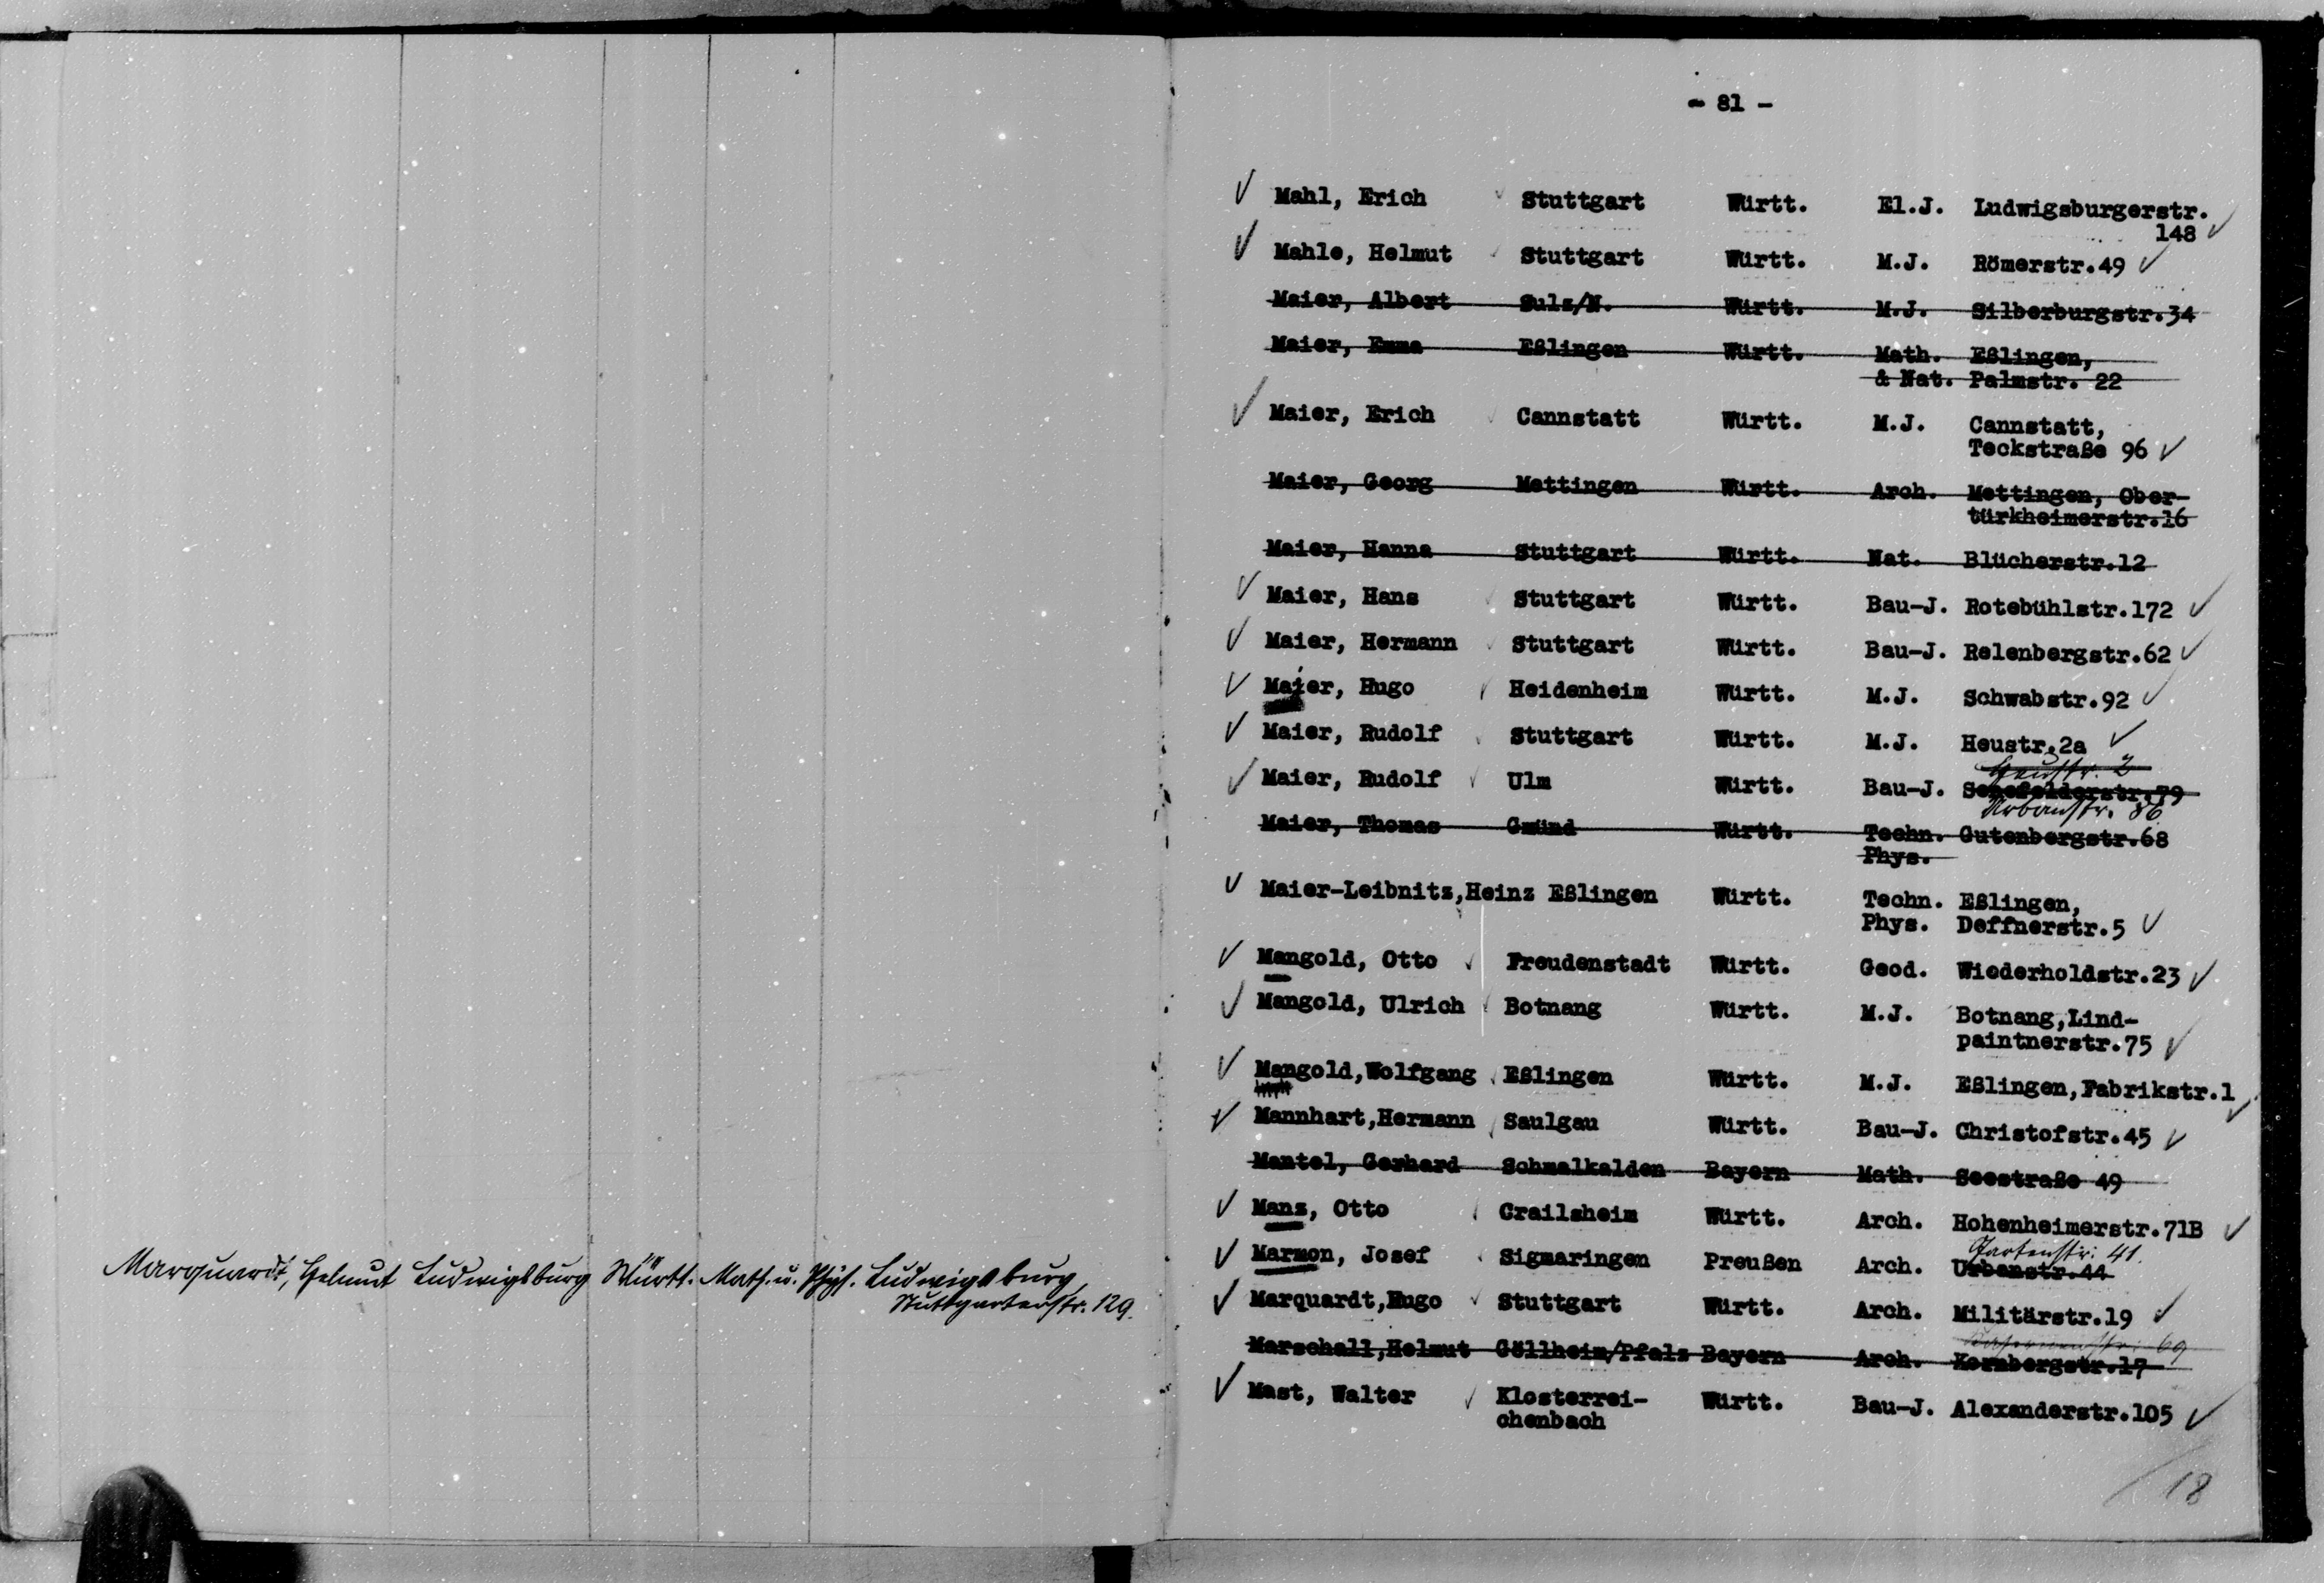 Marquardt, Helmut Ludwigsburg Württ. Math. u. Phys. Ludwigsburg,
Stuttgarterstr. 129.
- 81 -
Mahl, Erich Stuttgart Württ. El.J. Ludwigsburgerstr.
148
Mahle, Helmut Stuttgart Württ. M.J. Römerstr.49
Maier, Albert Sulz/N. Württ. M.J. Silberburgstr.34
Maier, Emma Eßlingen Württ. Math. Eßlingen,
& Nat. Palmstr. 22
Maier, Erich Cannstatt Württ. M.J. Cannstatt,
Teckstraße 96
Maier, Georg Mettingen Württ. Arch. Mettingen, Ober-
türkheimerstr.16
Maier, Hanna Stuttgart Württ. Nat. Blücherstr.12
Maier, Hans Stuttgart Württ. Bau-J. Rotebühlstr.172
Maier, Hermann Stuttgart Württ. Bau-J. Relenbergstr.62
Maier, Hugo Heidenheim Württ. M.J. Schwabstr.92
Maier, Rudolf Stuttgart Württ. M.J. Heustr.2a
Heustr. 2
Maier, Rudolf Ulm Württ. Bau-J. Senefelderstr.79
Urbanstr. 86
Maier, Thomas Gmünd Württ. Techn. Gutenbergstr.68
Phys.
Maier-Leibnitz,Heinz Eßlingen Württ. Techn. Eßlingen,
Phys. Deffnerstr.5
Mangold, Otto Freudenstadt Württ. Geod. Wiederholdstr.23
Mangold, Ulrich Botnang Württ. M.J. Botnang,Lind-
paintnerstr.75
Mangold,Wolfgang Eßlingen Württ. M.J. Eßlingen,Fabrikstr.1
Mannhart,Hermann Saulgau Württ. Bau-J. Christofstr.45
Mantel, Gerhard Schmalkalden Bayern Math. Seestraße 49
Manz, Otto Crailsheim Württ. Arch. Hohenheimerstr.71B
Gartenstr. 41.
Marmon, Josef Sigmaringen Preußen Arch. Urbanstr.44
Marquardt,Hugo Stuttgart Württ. Arch. Militärstr.19
69
Marschall,Helmut Göllheim/Pfalz Bayern Arch. Kornbergstr.17
Mast, Walter Klosterrei- Württ. Bau-J. Alexanderstr.105
chenbach
18